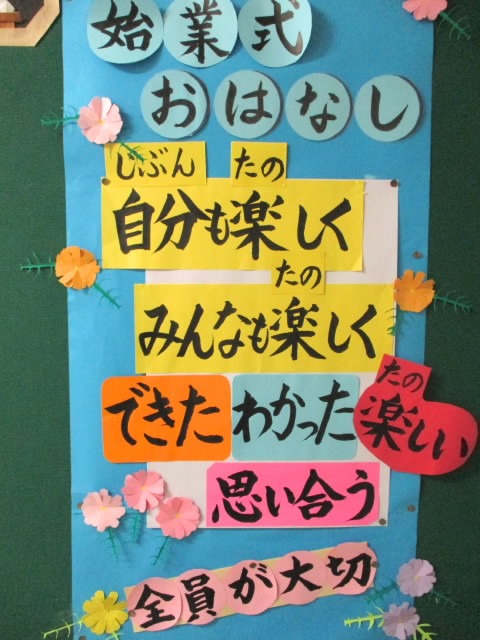 始業式
おはなし
じぶん たの
自分も楽しく
たの
みんなも楽しく
たの
できた わかった 楽しい
思い合う
全員が大切